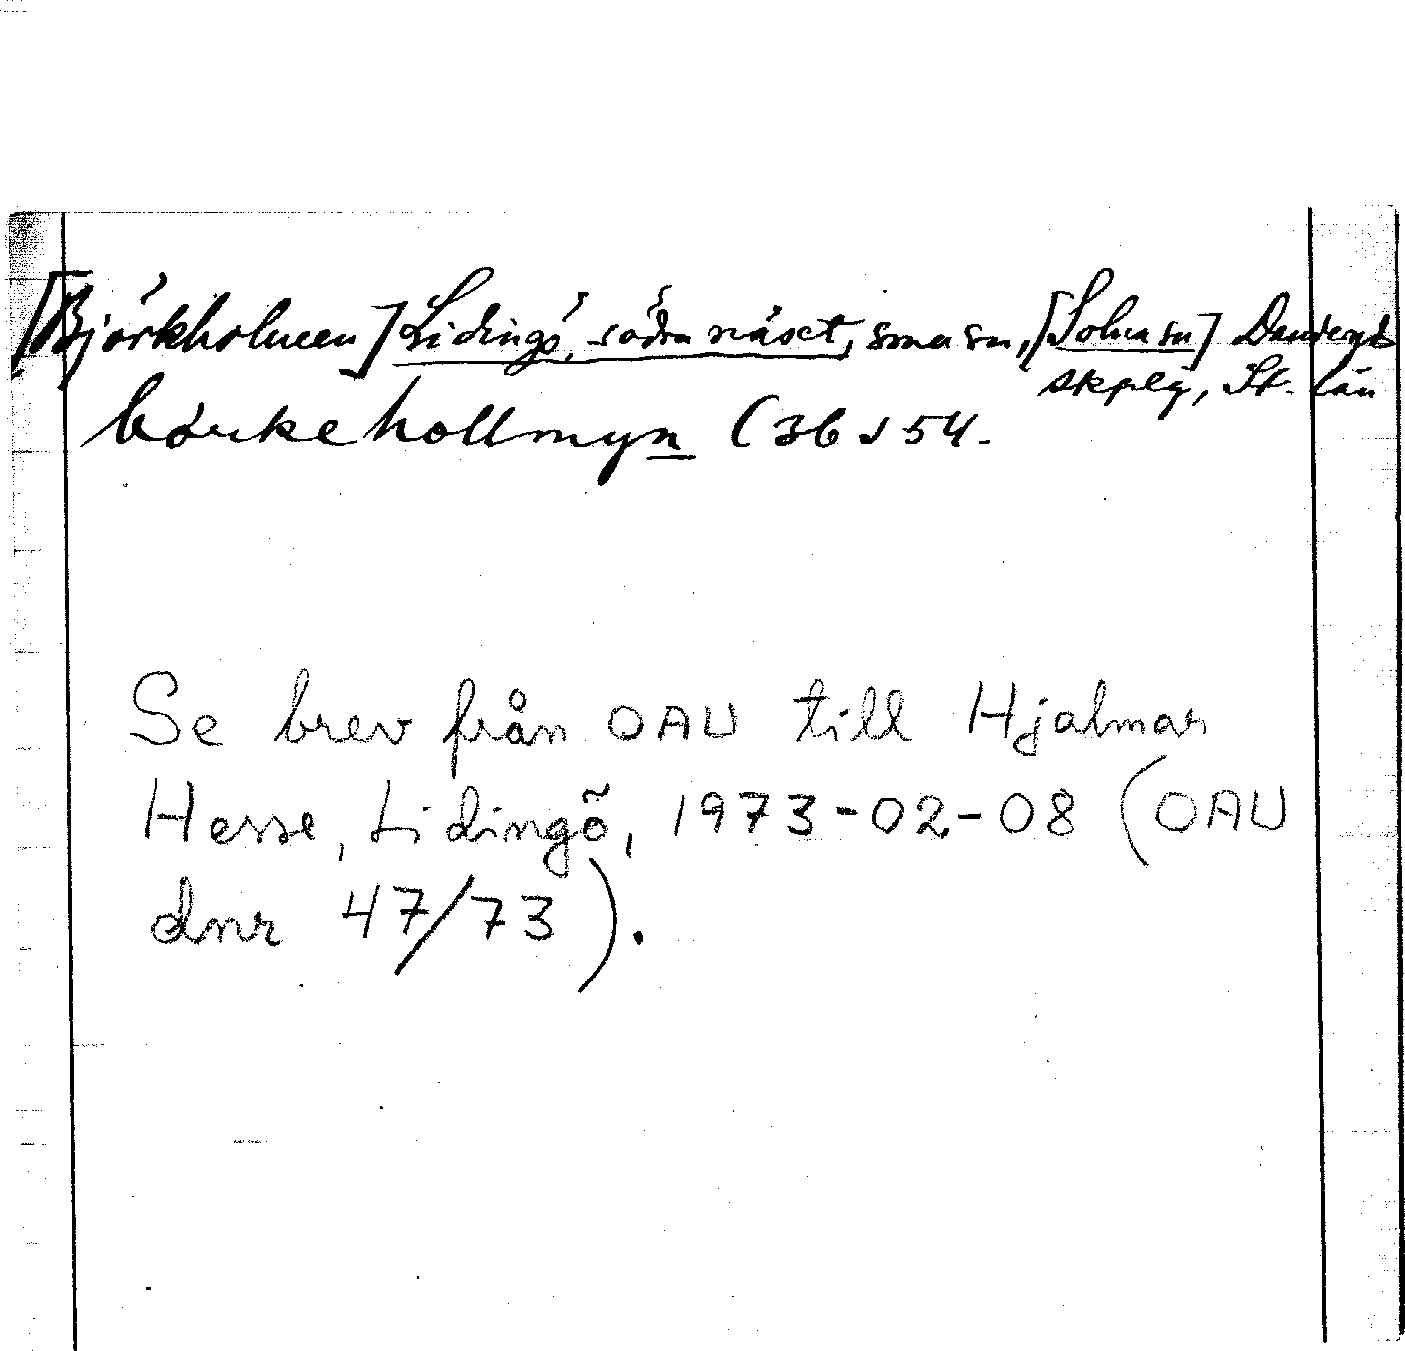 [Björkholmen] Lidingö, södra näset, smasn, [Solna sn] Danderyds
skpleg, St. län
börkehollmyn (36 v 54.
Se brev från OAU till Hjalmar
Hesse, Lidingö, 1973-02-08 (OAU
dnr 47/73).